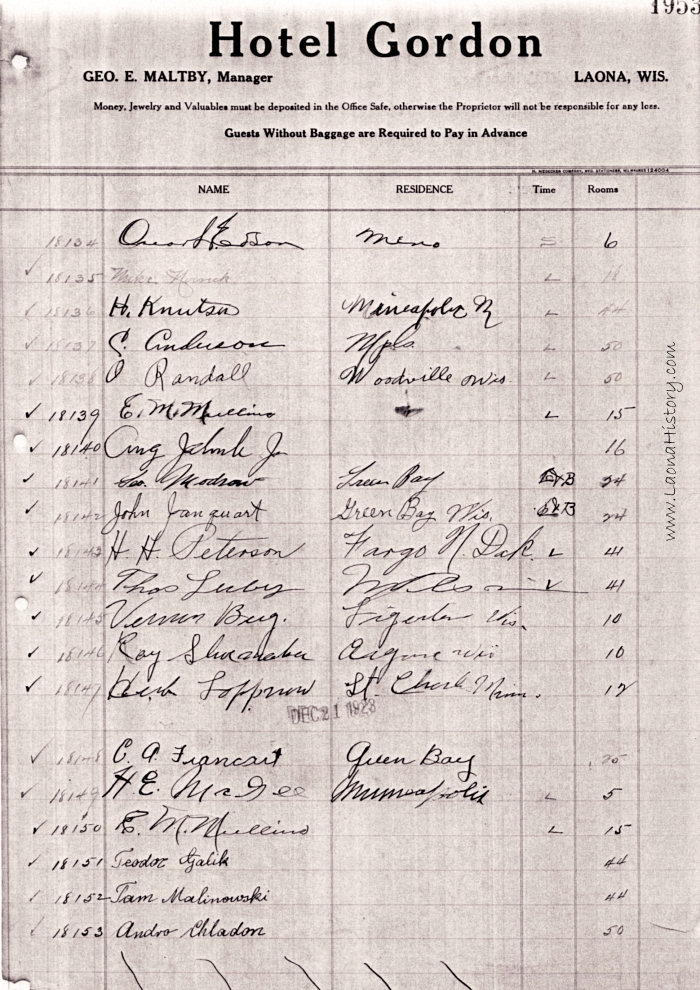 1953
Hotel Gordon
GEO. E. MALTBY, Manager LAONA, WIS.
Money, Jewelry and Valuables must be deposited in the Office Safe, otherwise the Proprietor will not be responsible for any loss.
Guests Without Baggage are Required to Pay in Advance
H. NIEDECKEN COMPANY, MFG. STATIONERS, MILWAUKEE 124004
NAME RESIDENCE Time Rooms
18134 Oscar 6
18135 Mike L 18
18136 H. Knutson L 44
18137 C. Anderson Mpls. L 50
18138 O Randall Woodville Wis. L 50
18139 E. M. Mullins L 15
18140 Aug Jr 16
18141 Geo. Modrow Green Bay B 24
18142 John Janquart Green Bay Wis. B 24
18143 H. H. Peterson Fargo N. Dak. L 41
18144 Thos L 41
18145 Vernon Berg. Tigerton Wis. 10
18146 Roy Shoemaker Argonne Wis 10
18147 Herb St. Minn. 12
DEC 21 1923
18148 C. A. Francart Green Bay
18149 H E. McGee Minneapolis L 5
18150 E. M. Mullins L 15
18151 Teodor Galik 44
18152 Tam Malinowski 44
18153 Andro Chladon 50
www.LaonaHistory.com